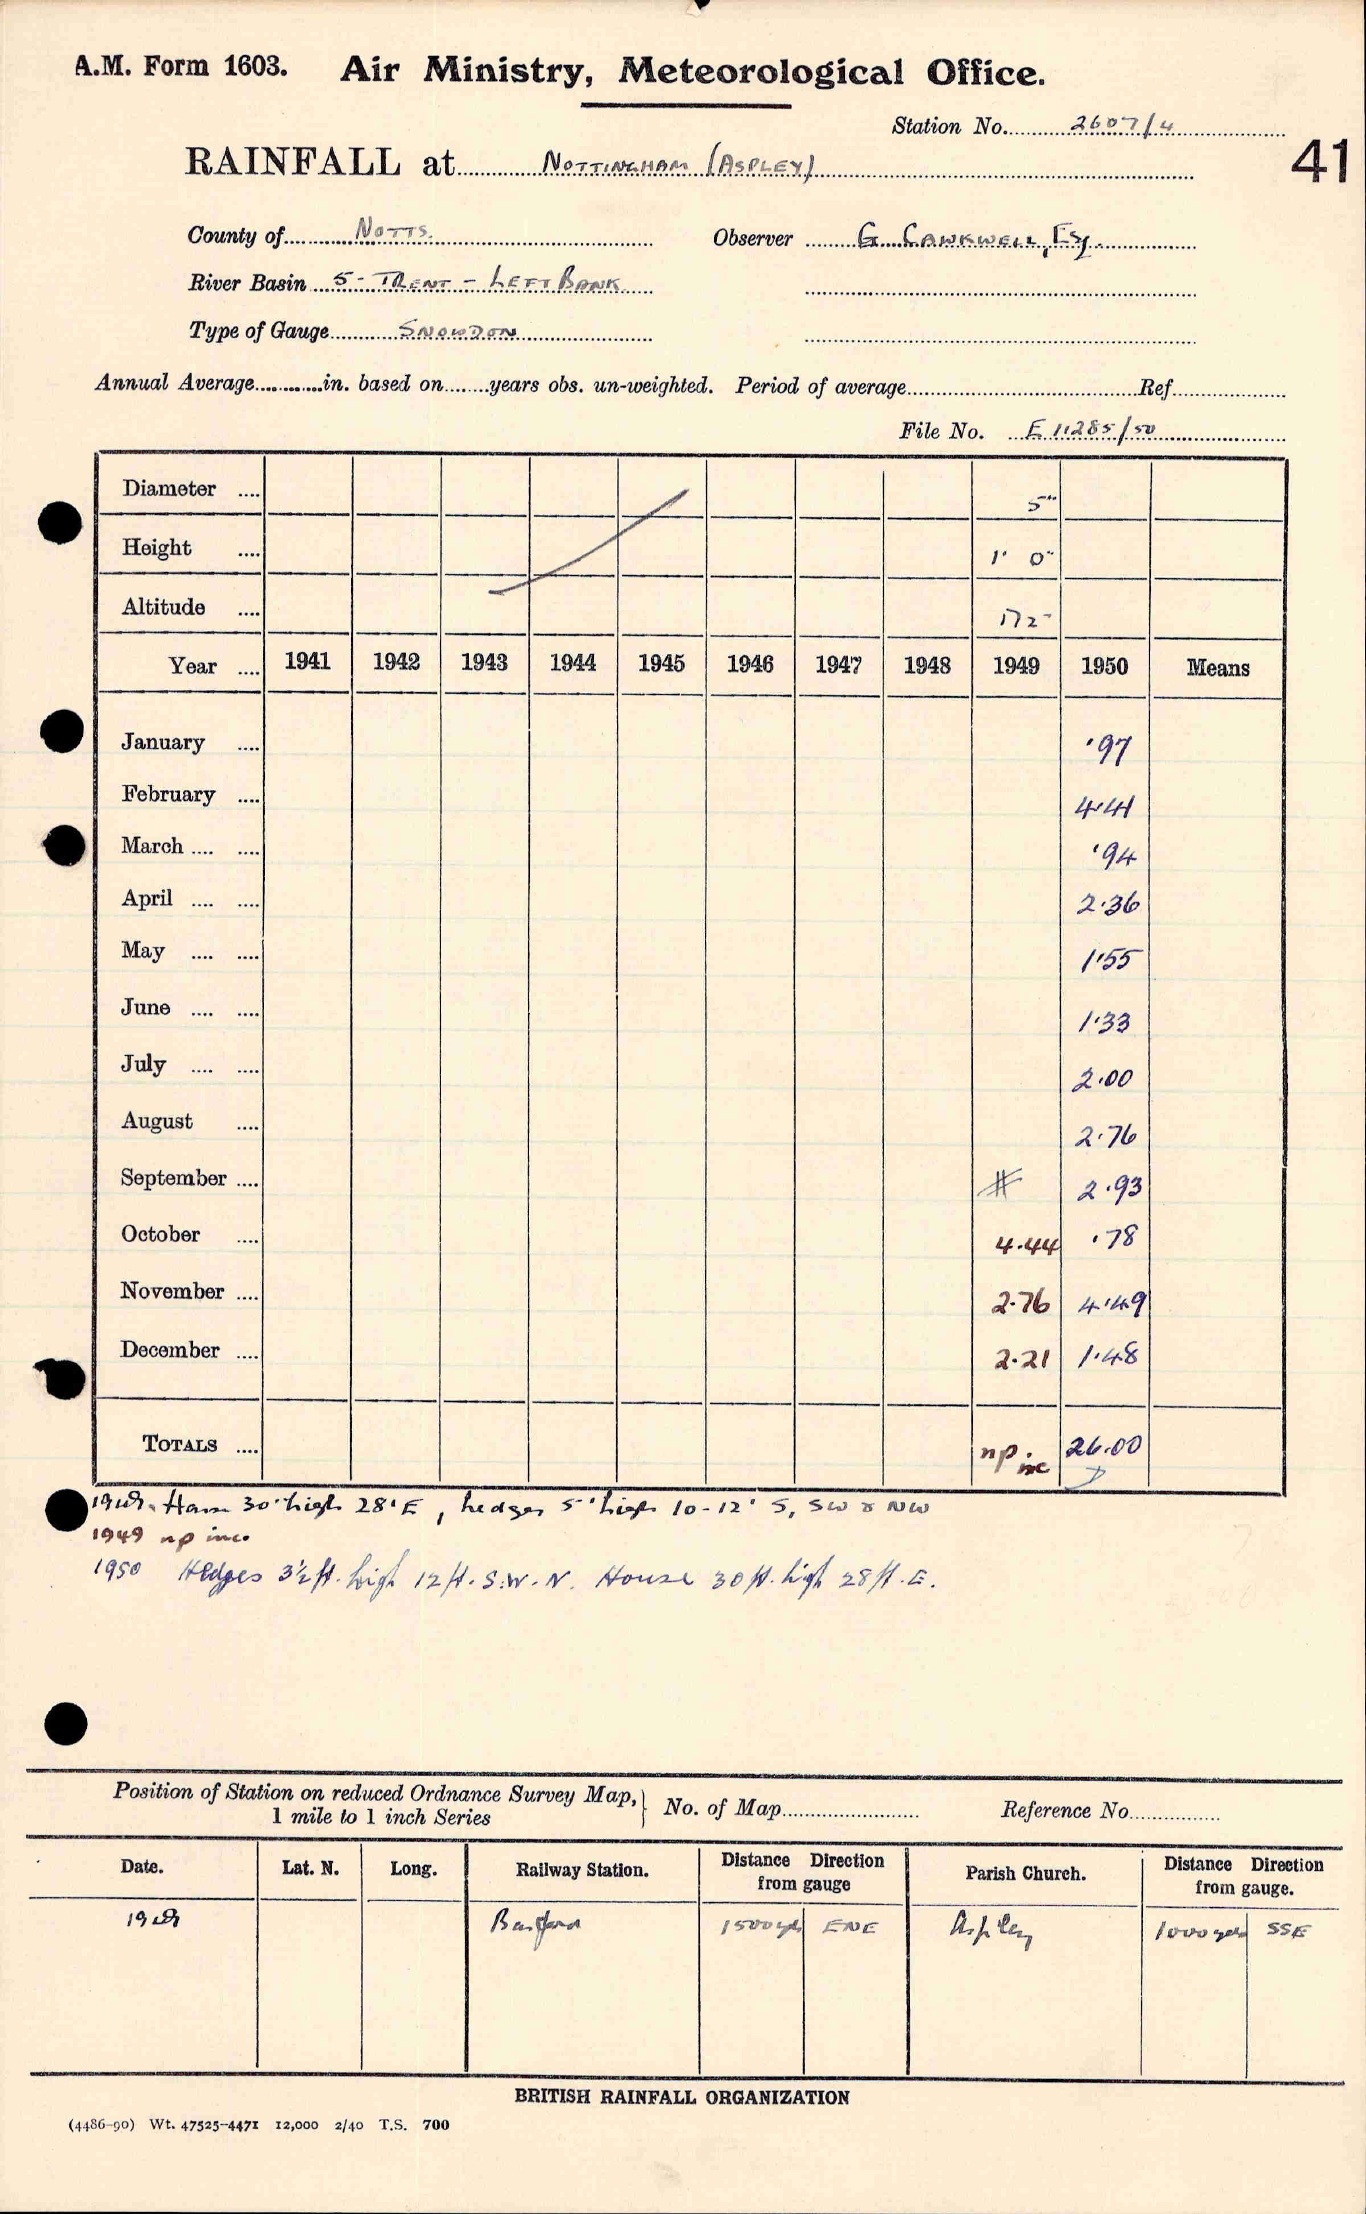 A.M. Form 1603. Air Ministry, Meteorological Office.
Station No. 2607/4
41
RAINFALL at NOTTINGHAM (ASPLEY)
County of NOTTS. Observer G. CAWKWELL, Esq.
River Basin 5 - TRENT - LEFT BANK
Type of Gauge SNOWDON
Annual Average in. based on years obs. un-weighted. Period of average Ref.
File No. E 11285/50
Diameter .... 5"
Height .... 1' 0"
Altitude .... 172
Year .... 1941 1942 1943 1944 1945 1946 1947 1948 1949 1950 Means
January .... ·97
February .... 4·41
March .... .... ·94
April .... .... 2·36
May .... .... 1·55
June .... .... 1·33
July .... .... 2·00
August .... 2·76
September .... # 2·93
October .... 4·44 ·78
November .... 2·76 4·49
December .... 2·21 1·48
TOTALS .... np inc 26·00
30' high 28' E, hedges 5' high 10-12' S, SW & NW
1949 np inc.
1950 Hedges 3½ ft. high 12 ft. S.W.N. House 30 ft. high 28 ft. E.
Position of Station on reduced Ordnance Survey Map, 1 mile to 1 inch Series } No. of Map Reference No.
Date. Lat. N. Long. Railway Station. Distance from gauge Direction Parish Church. Distance from gauge. Direction
Basford 1500 yds ENE Aspley 1000 yds SSE
BRITISH RAINFALL ORGANIZATION
(4486-90) Wt. 47525-4471 12,000 2/40 T.S. 700